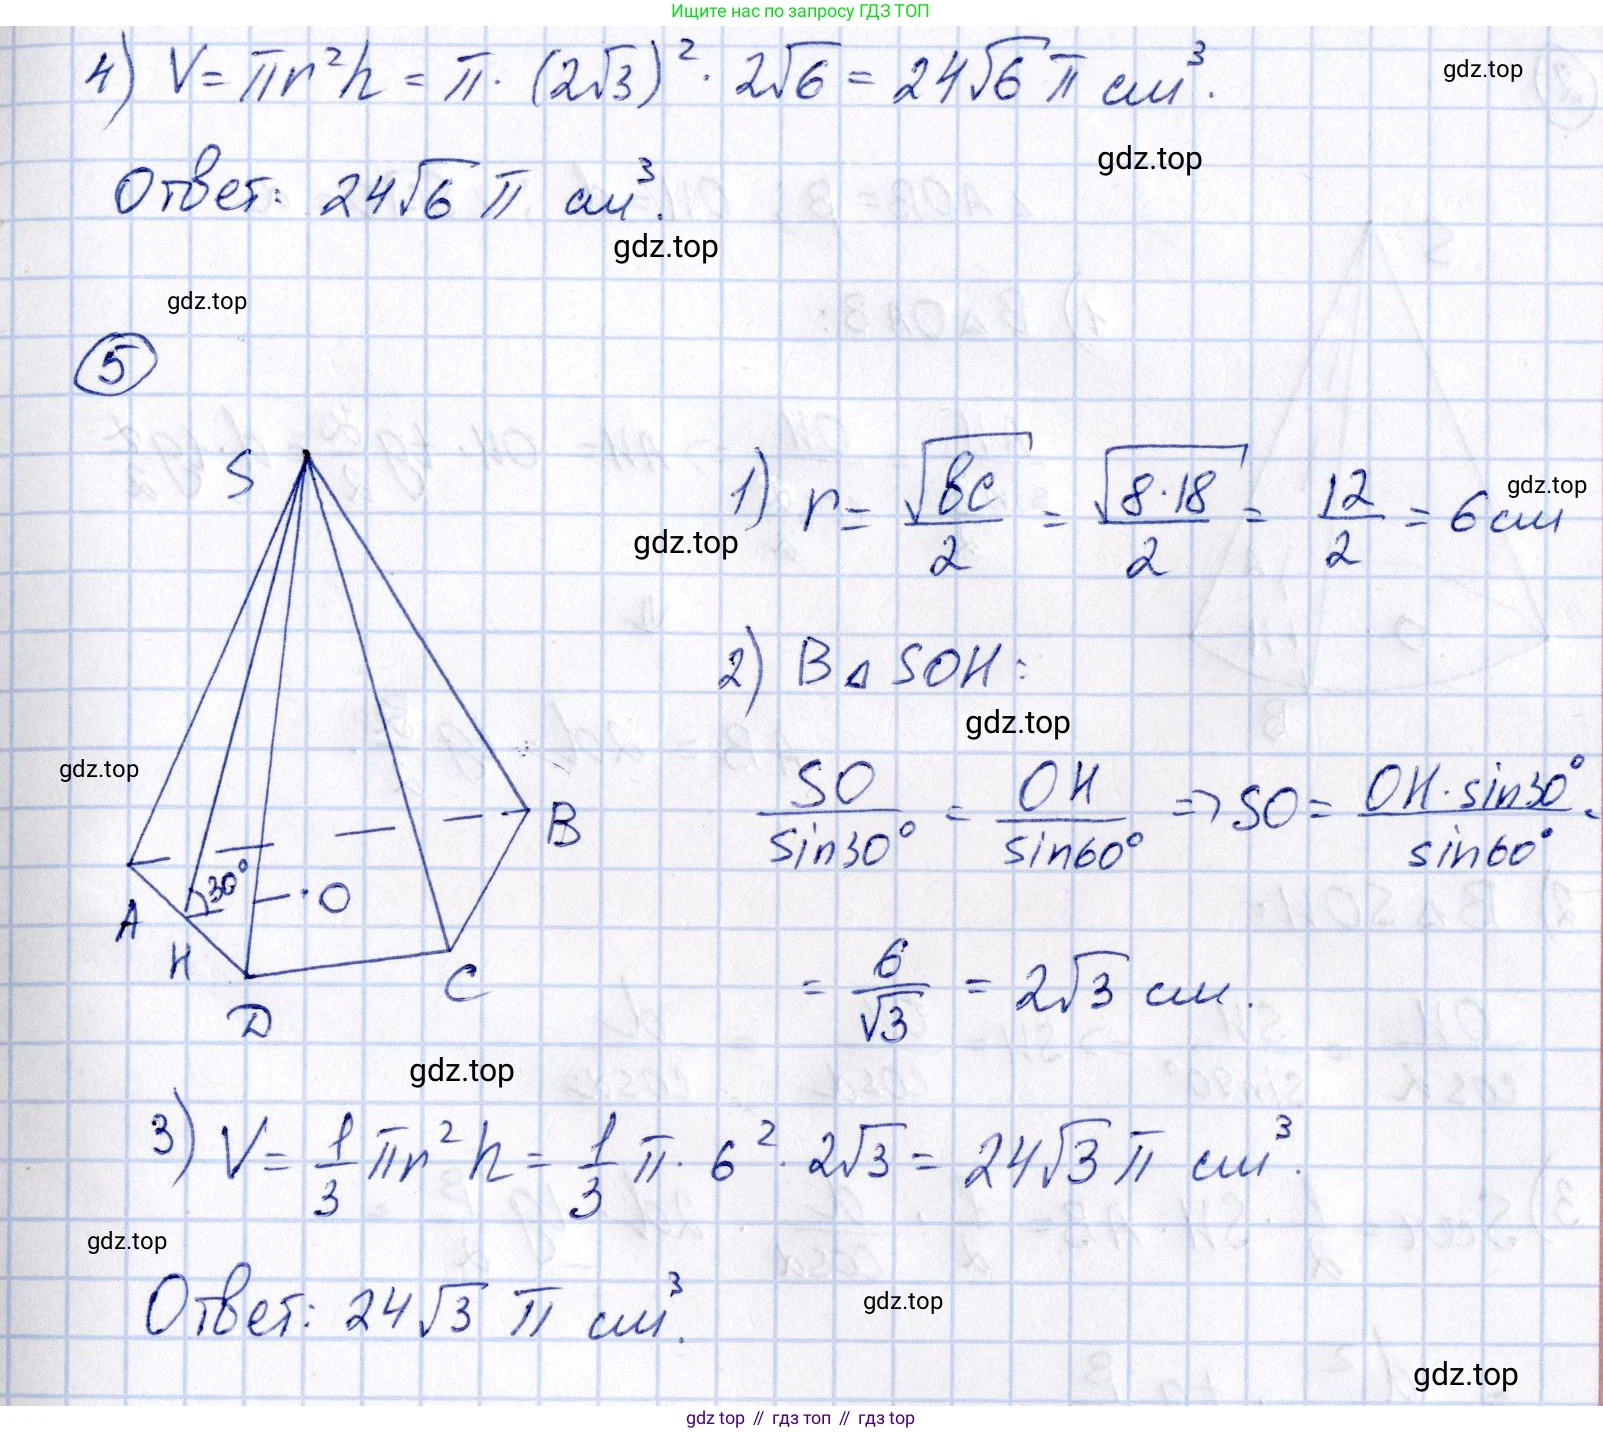 Ищите нас по запросу ГДЗ ТОП
4) V = πr²h = π · (2√3)² · 2√6 = 24√6 π см³.
gdz.top
gdz.top
Ответ: 24√6 π см³.
gdz.top
gdz.top
5
S
1) r = √bc / 2 = √8·18 / 2 = 12/2 = 6 см
gdz.top
gdz.top
2) В △ SOH:
gdz.top
SO / sin30° = OH / sin60° => SO = OH · sin30° / sin60° =
gdz.top
B
30°
O
A
H
= 6/√3 = 2√3 см.
C
D
gdz.top
3) V = 1/3 πr²h = 1/3 π · 6² · 2√3 = 24√3 π см³.
gdz.top
Ответ: 24√3 π см³.
gdz.top
gdz.top
gdz top // гдз топ // gdz top